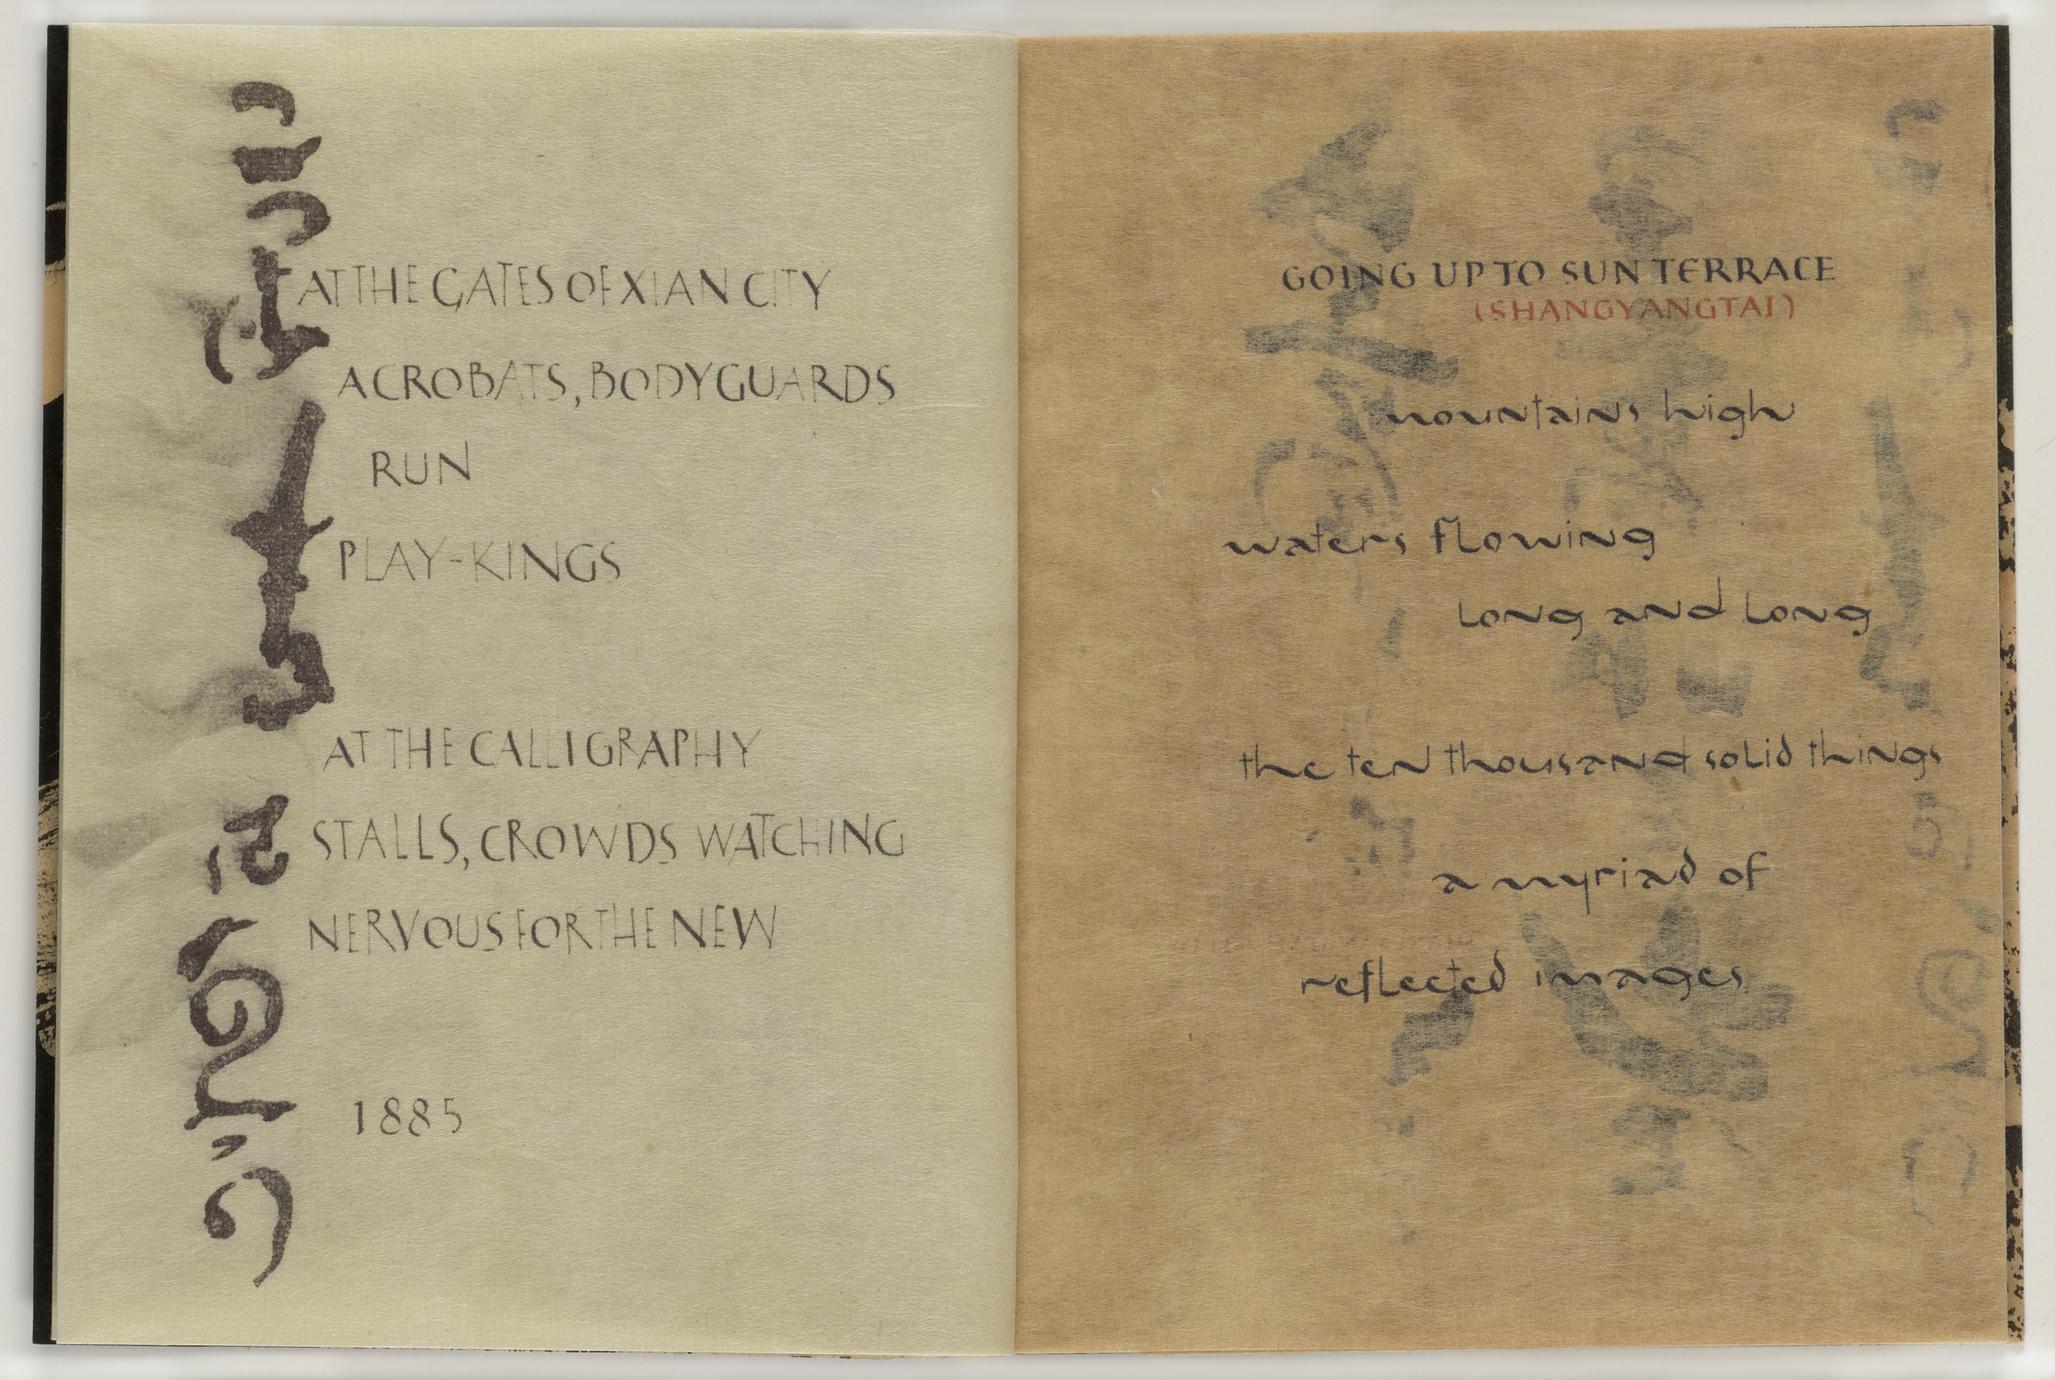 AT THE GATES OF XIAN CITY
ACROBATS, BODYGUARDS
RUN
PLAY-KINGS
AT THE CALLIGRAPHY
STALLS, CROWDS WATCHING
NERVOUS FOR THE NEW
1885
GOING UP TO SUN TERRACE
(SHANGYANGTAI)
mountains high
waters flowing
long and long
the ten thousand solid things
a myriad of
reflected images